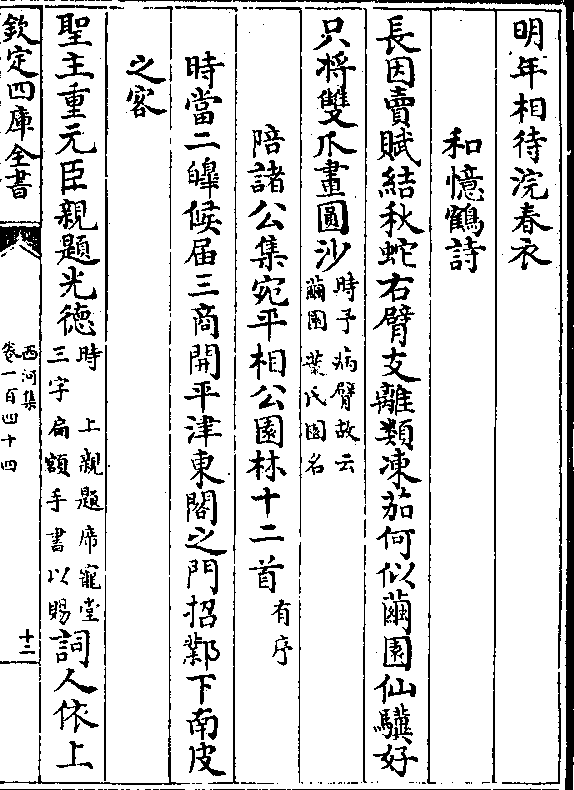 明年相待浣春衣
和憶鶴詩
長因賣賦結秋蛇右臂支離類凍茄何似繭園仙驥好
只將雙爪畫圓沙時予病臂故云
繭園葉氏園名
陪諸公集宛平相公園林十二首有序
時當二皥候届三商開平津東閣之門招鄴下南皮
之客
聖主重元臣親題光德時 上親題席寵堂
三字扁額手書以賜詞人依上
欽定四庫全書
西河集
卷一百四十四
十二